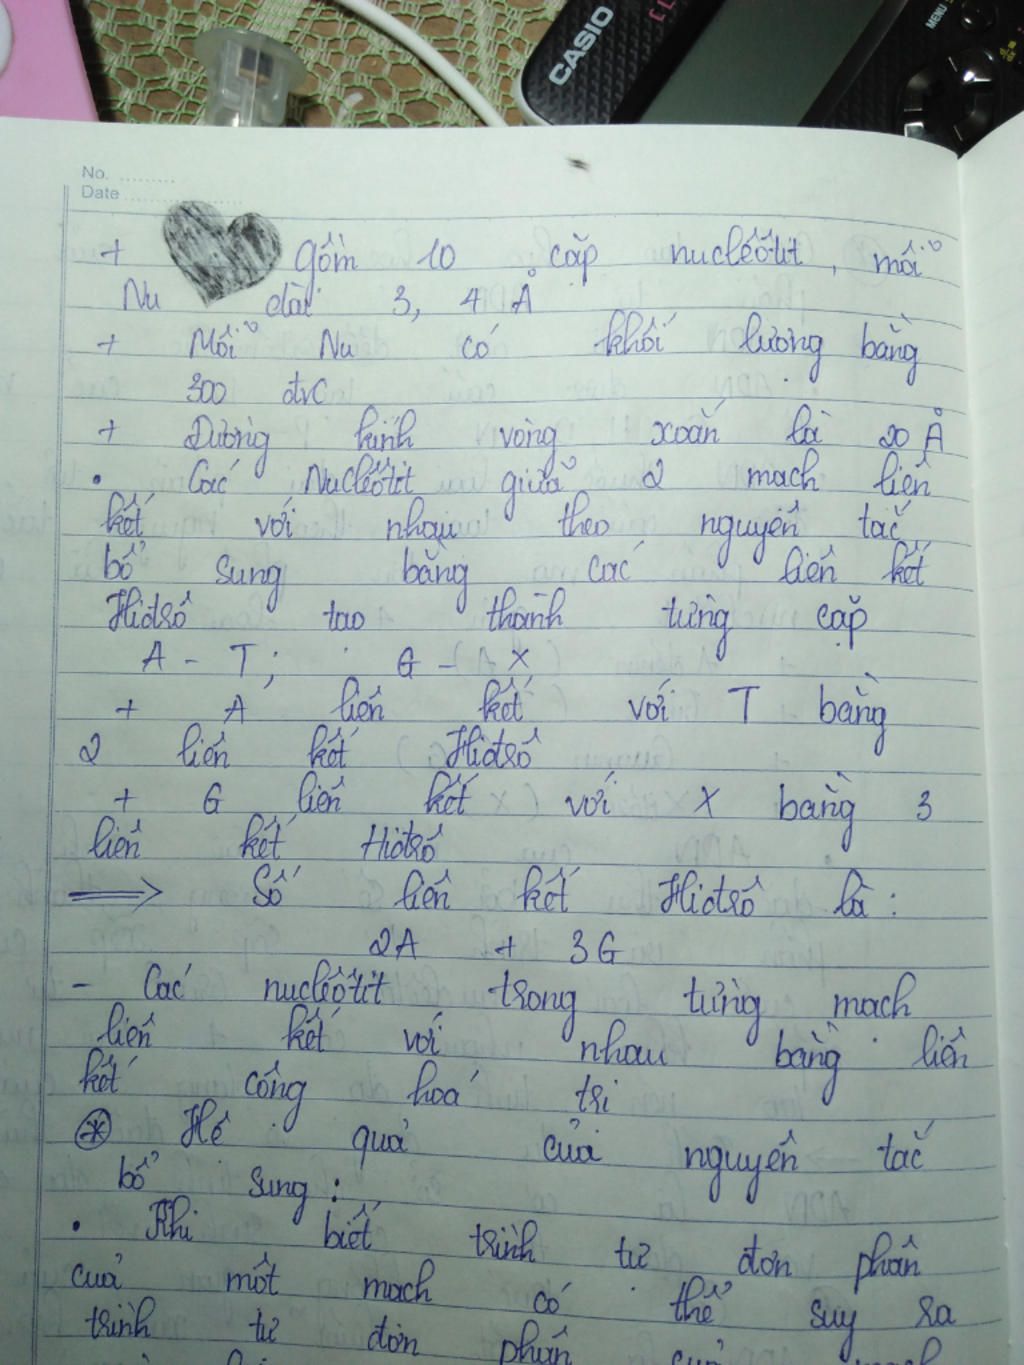 CASIO
MENU
No. ........
Date ....................
+ gồm 10 cặp nuclêôtit, mỗi
Nu dài 3,4 Å
+ Mỗi Nu có khối lượng bằng
300 đvC
+ Đường kính vòng xoắn là 20 Å
• Các Nuclêôtit giữa 2 mạch liên
kết với nhau theo nguyên tắc
bổ sung bằng các liên kết
Hiđrô tạo thành từng cặp
A - T; G - X
+ A liên kết với T bằng
2 liên kết Hiđrô
+ G liên kết với X bằng 3
liên kết Hiđrô
⟹ Số liên kết Hiđrô là:
2A + 3G
- Các nuclêôtit trong từng mạch
liên kết với nhau bằng liên
kết cộng hoá trị
⊛ Hệ quả của nguyên tắc
bổ sung:
• Khi biết trình tự đơn phân
của một mạch có thể suy ra
trình tự đơn phân của mạch